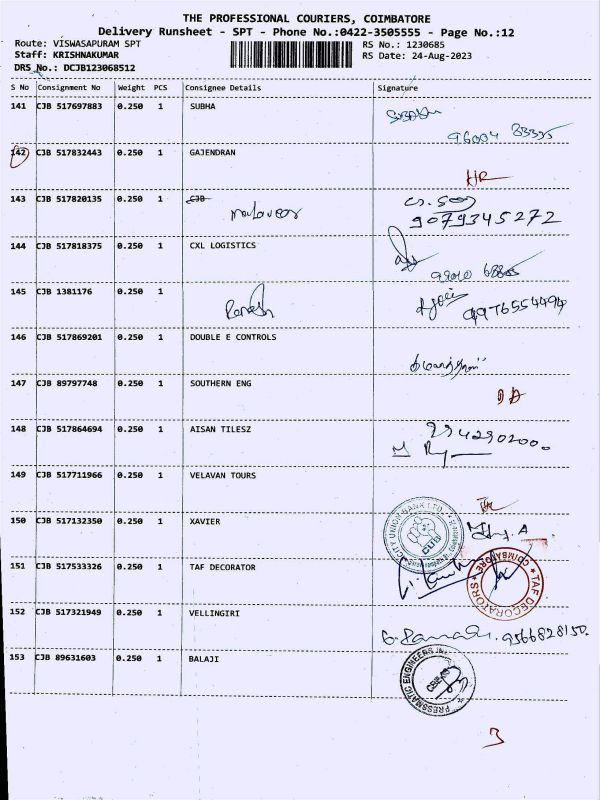 THE PROFESSIONAL COURIERS, COIMBATORE
Delivery Runsheet - SPT - Phone No.:0422-3505555 - Page No.:12
Route: VISWASAPURAM SPT RS No.: 1230685
Staff: KRISHNAKUMAR RS Date: 24-Aug-2023
DRS No.: DCJB123068512
S No Consignment No Weight PCS Consignee Details Signature
141 CJB 517697883 0.250 1 SUBHA
142 CJB 517832443 0.250 1 GAJENDRAN
143 CJB 517820135 0.250 1 CJB
9079345272
144 CJB 517818375 0.250 1 CXL LOGISTICS
145 CJB 1381176 0.250 1
Ramesh 9976554494
146 CJB 517869201 0.250 1 DOUBLE E CONTROLS
147 CJB 89797748 0.250 1 SOUTHERN ENG
148 CJB 517864694 0.250 1 AISAN TILESZ
149 CJB 517711966 0.250 1 VELAVAN TOURS
150 CJB 517132350 0.250 1 XAVIER
CITY UNION BANK LTD.
CUB
151 CJB 517533326 0.250 1 TAF DECORATOR
TAF DECORATORS * COIMBATORE *
152 CJB 517321949 0.250 1 VELLINGIRI
9566828150.
153 CJB 89631603 0.250 1 BALAJI
PRESSMATIC ENGINEERS
3